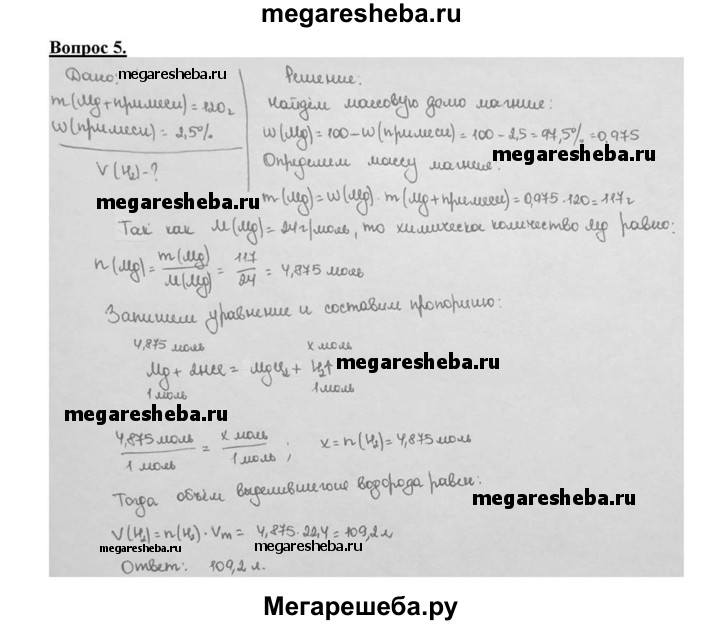 megaresheba.ru
Вопрос 5.
Дано: megaresheba.ru Решение:
m(Mg+примеси)=120г Найдём массовую долю магния:
w(примеси)=2,5% w(Mg)=100-w(примеси)=100-2,5=97,5%=0,975
megaresheba.ru
V(H₂)-? Определяем массу магния:
megaresheba.ru m(Mg)=w(Mg)·m(Mg+примеси)=0,975·120=117г
Так как M(Mg)=24г/моль, то химическое количество Mg равно:
n(Mg)=m(Mg)/M(Mg)=117/24=4,875 моль
Запишем уравнение и составим пропорцию:
4,875 моль x моль
Mg+2HCl=MgCl₂+H₂↑ megaresheba.ru
1 моль 1 моль
megaresheba.ru
4,875 моль/1 моль=x моль/1 моль; x=n(H₂)=4,875 моль
Тогда объём выделившегося водорода равен:
megaresheba.ru
V(H₂)=n(H₂)·Vm=4,875·22,4=109,2л
megaresheba.ru megaresheba.ru
Ответ: 109,2 л.
Мегарешеба.ру